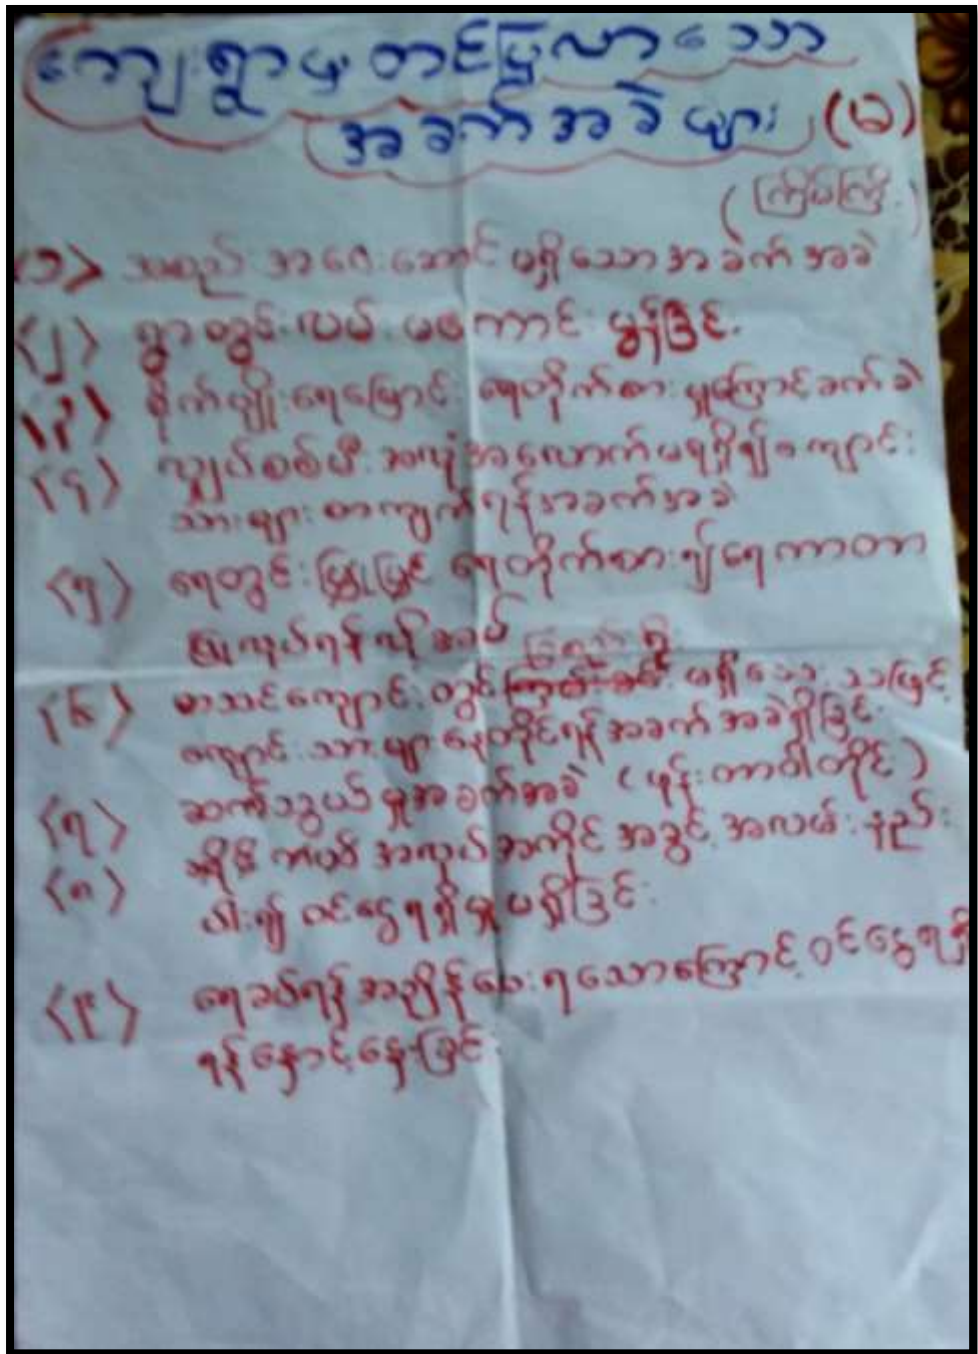 ကျေးရွာမှ တင်ပြလာသော
အခက်အခဲများ (မ)
(ကြိမ်ကြီး)
<၁> အဝေးဆောင် မရှိသောအခက်အခဲ
<၂> ရွာတွင်းလမ်း မကောင်းမွန်ခြင်း
<၃> စိုက်ပျိုးရေမြောင်း ရေတိုက်စားမှုကြောင့်ခက်ခဲ
<၄> လျှပ်စစ်မီး အလုံအလောက်မရရှိ၍ ကျောင်း
သားများ စာကျက်ရန်အခက်အခဲ
<၅> ရေတွင်းပြုပြင် ရေတိုက်စား၍ ရေကာတာ
ပြုလုပ်ရန်လိုအပ်
<၆> စာသင်ကျောင်းတွင် မရှိသော
ကျောင်းသားများ နေထိုင်ရန်အခက်အခဲရှိခြင်း
<၇> ဆက်သွယ်မှုအခက်အခဲ (ဖုန်းတာဝါတိုင်)
<၈> အလုပ်အကိုင်အခွင့်အလမ်းနည်း
ပါး၍ ဝင်ငွေရရှိမှုမရှိခြင်း
<၉> ရေခပ်ရန်အချိန်ပေးရသောကြောင့် ဝင်ငွေရရှိ
ရန်နှောင့်နှေးခြင်း